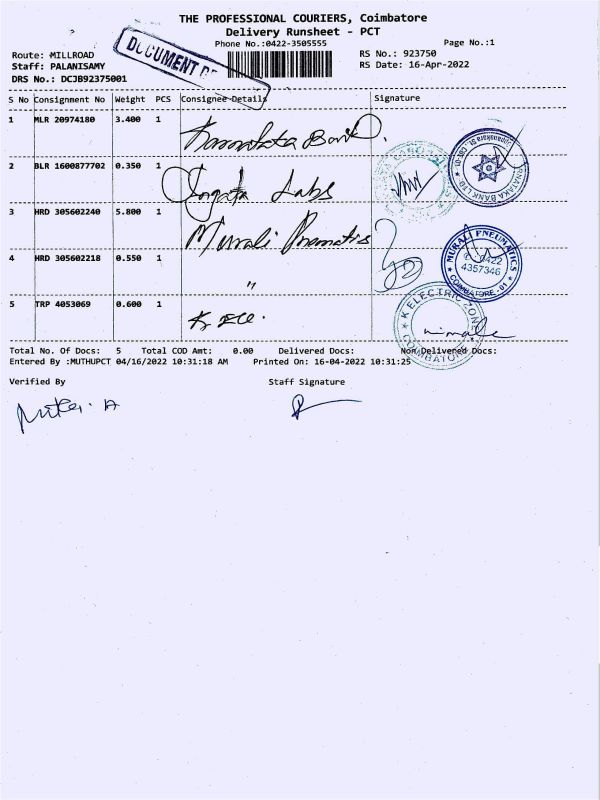 THE PROFESSIONAL COURIERS, Coimbatore
Delivery Runsheet - PCT
Phone No.:0422-3505555
Page No.:1
DOCUMENT
Route: MILLROAD
RS No.: 923750
Staff: PALANISAMY
RS Date: 16-Apr-2022
DRS No.: DCJB92375001
S No Consignment No Weight PCS Consignee Details Signature
1 MLR 20974180 3.400 1 Karnataka Bank
KARNATAKA BANK LTD
2 BLR 1600877702 0.350 1 Labs
3 HRD 305602240 5.800 1 Murali Pneumatis
MURALI PNEUMATICS
0422
4357346
COIMBATORE - 01
4 HRD 305602218 0.550 1 "
5 TRP 4053069 0.600 1 K ELE.
K ELECTRIC ZONE
COIMBATORE
nirmala
Total No. Of Docs: 5 Total COD Amt: 0.00 Delivered Docs: Non Delivered Docs:
Entered By :MUTHUPCT 04/16/2022 10:31:18 AM Printed On: 16-04-2022 10:31:25
Verified By Staff Signature